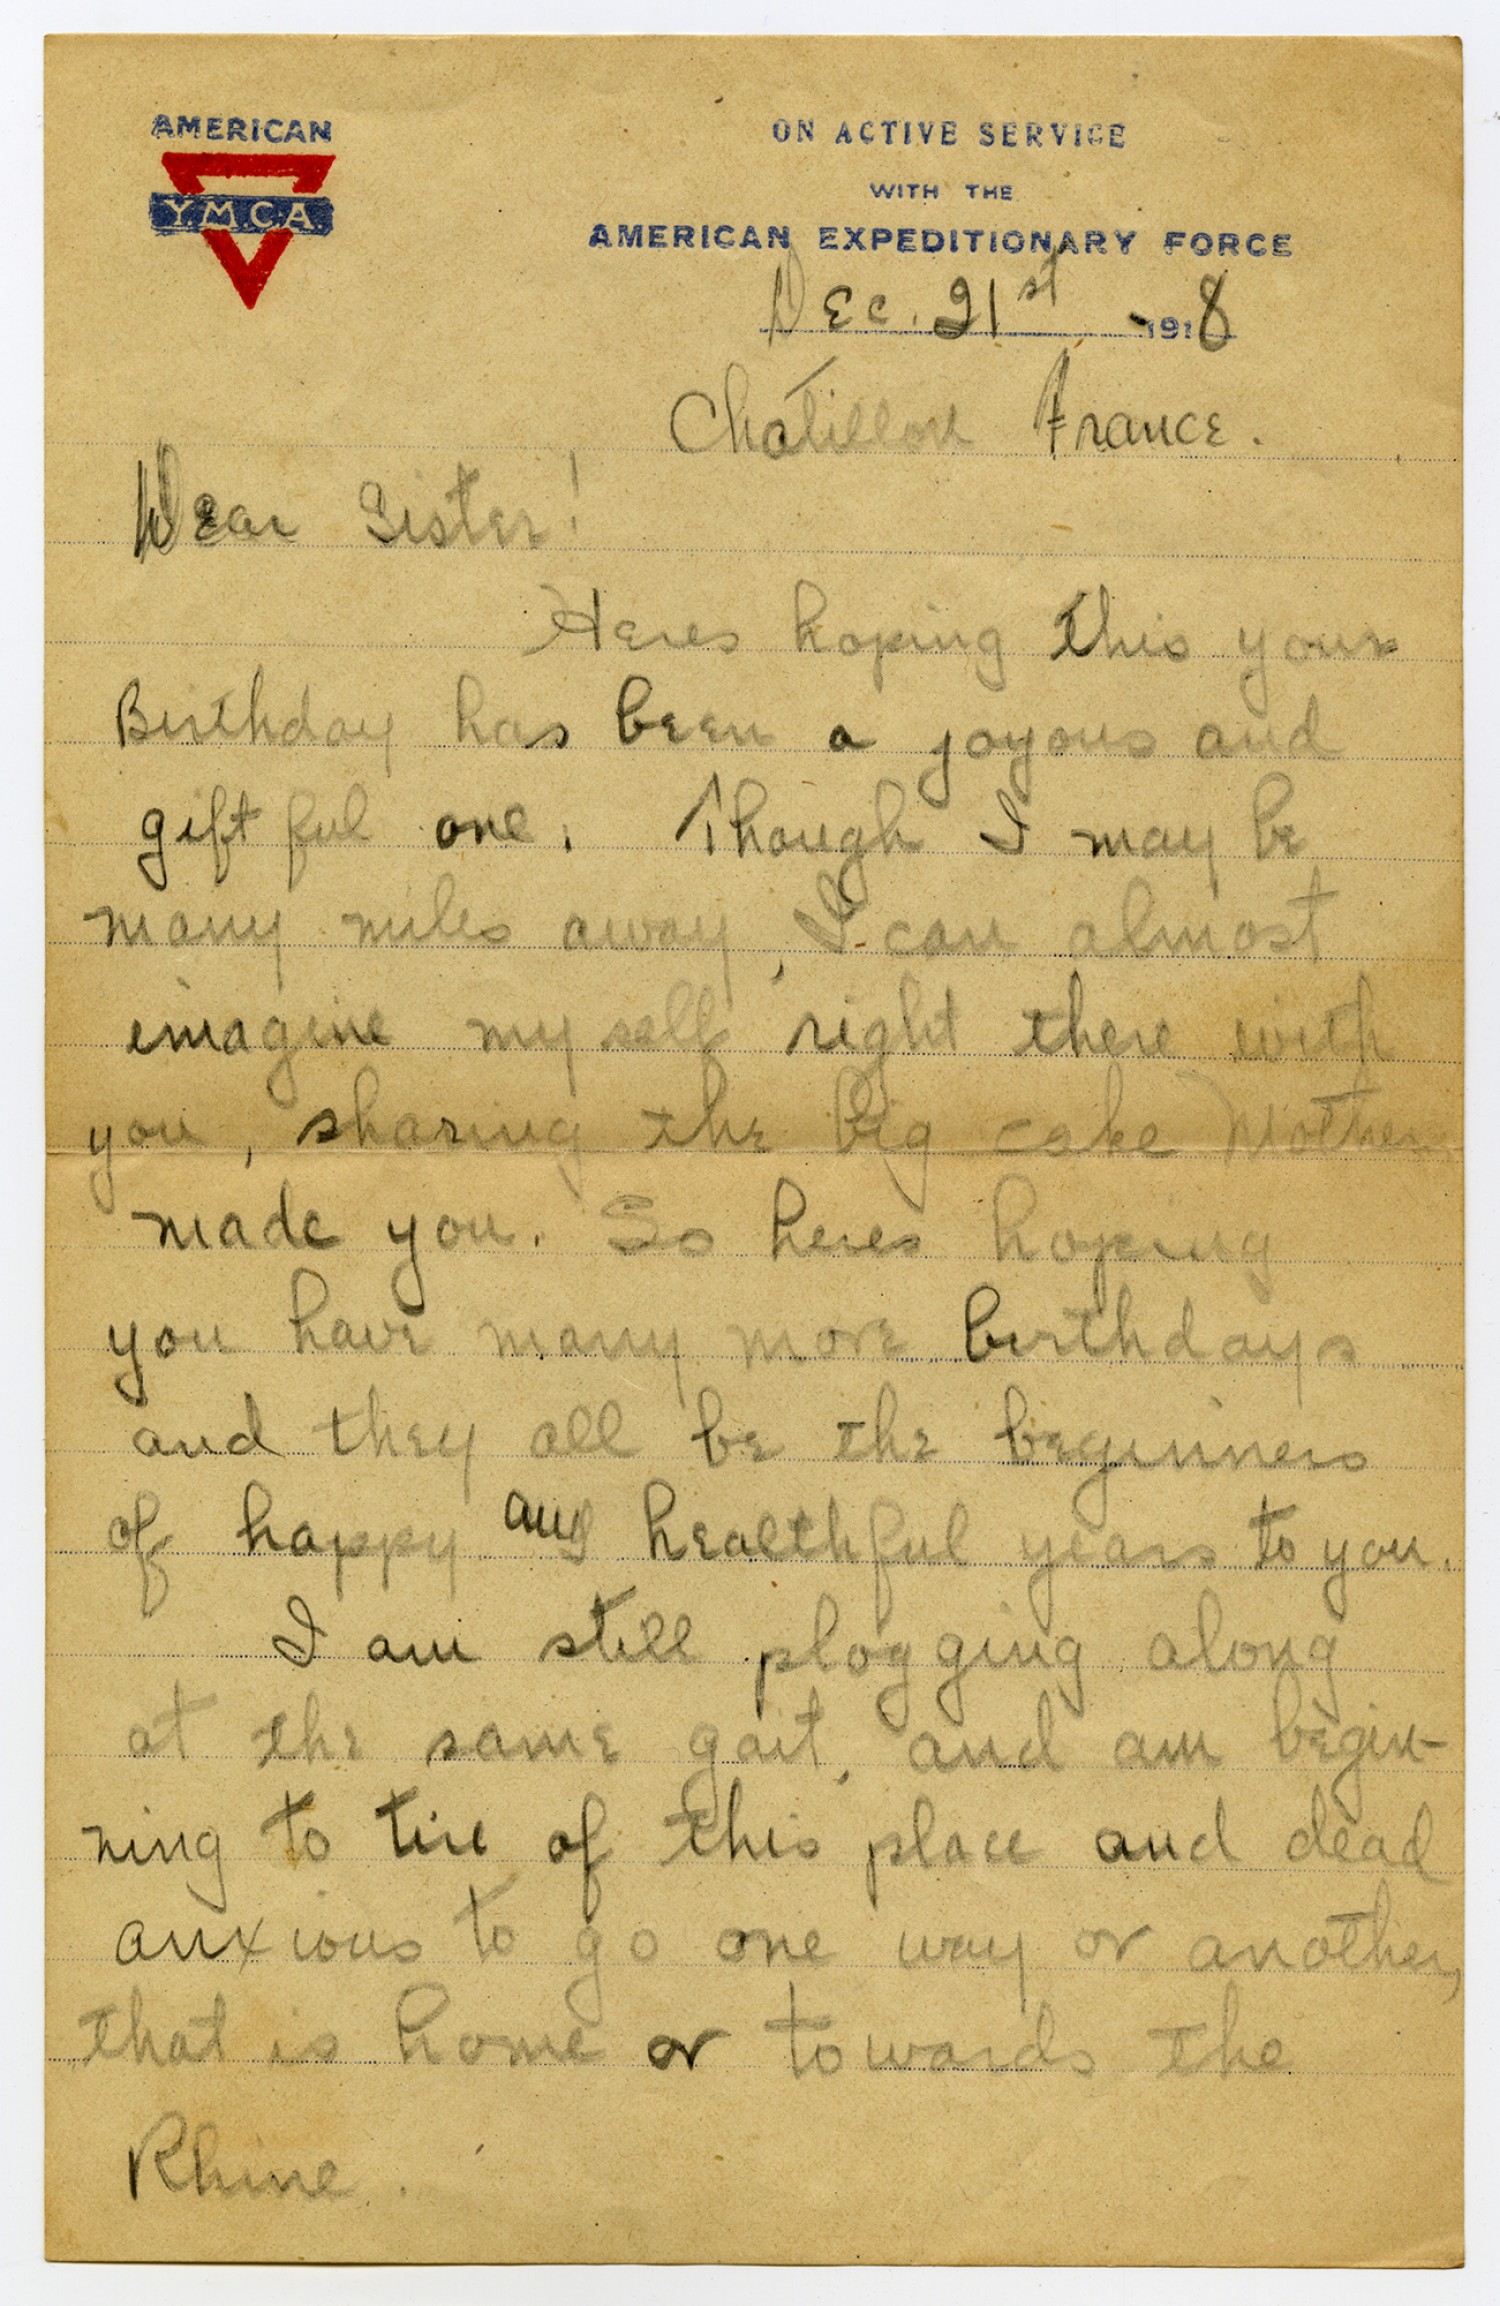 AMERICAN
Y.M.C.A.
ON ACTIVE SERVICE
WITH THE
AMERICAN EXPEDITIONARY FORCE
Dec. 21st 1918
Chatillon France.
Dear Sister!
Heres hoping this your
Birthday has been a joyous and
giftful one. Though I may be
many miles away, I can almost
imagine myself right there with
you, sharing the big cake Mother
made you. So heres hoping
you have many more birthdays
and they all be the beginners
of happy and healthful years to you.
I am still plogging along
at the same gait, and am begin-
ning to tire of this place and dead
anxious to go one way or another,
that is home or towards the
Rhine.